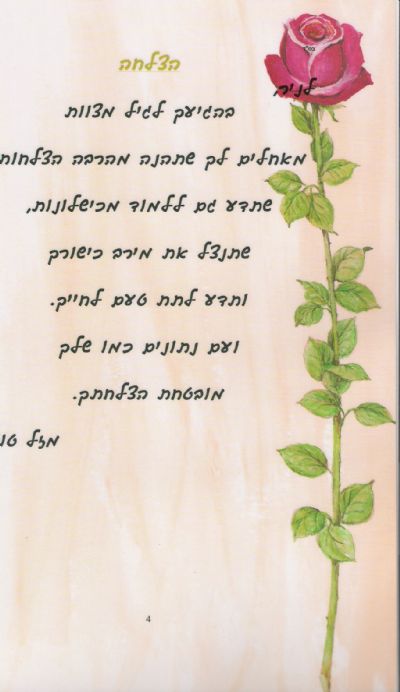 בס"ד
הצלחה
לניר,
בהגיעך לגיל מצוות
מאחלים לך שתהנה מהרבה הצלחות
שתדע גם ללמוד מכישלונות,
שתנצל את מירב כישורך
ותדע לתת טעם לחייך.
ועם נתונים כמו שלך
מובטחת הצלחתך.
מזל טו
4